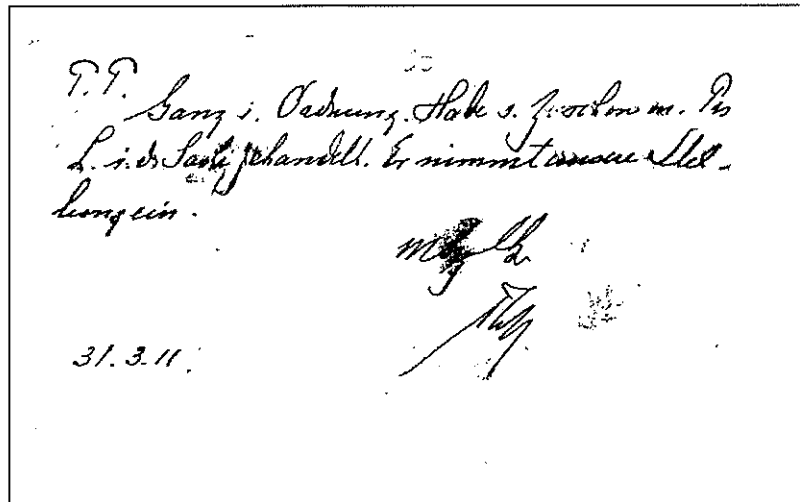 P.P.
Ganz i. Ordnung. Habe s. Zuschon m. Ps
L. i. ds Sache gehandelt. Er nimmt unsere Stel-
lung ein.
31.3.11.